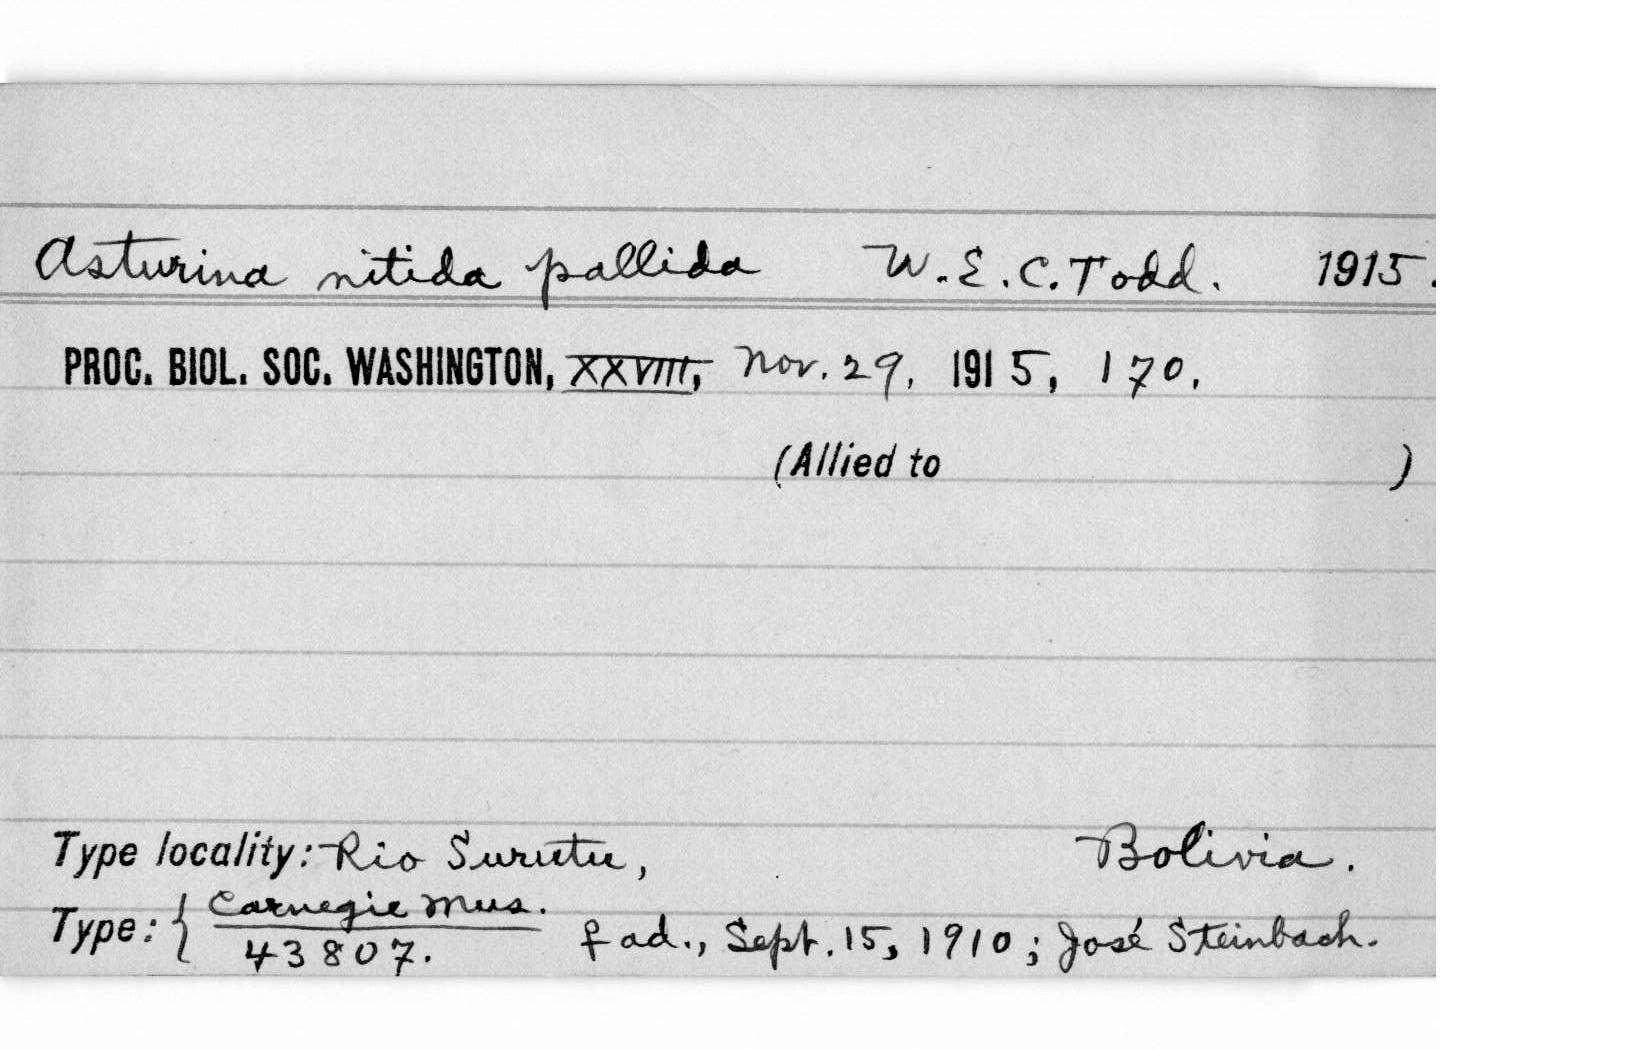 Asturina nitida pallida W.E.C. Todd. 1915.
PROC. BIOL. SOC. WASHINGTON, XXVIII, Nov. 29, 1915, 170.
(Allied to )
Type locality: Rio Surutu, Bolivia.
Type: { Carnegie Mus.
43807. ♀ ad., Sept. 15, 1910; José Steinbach.